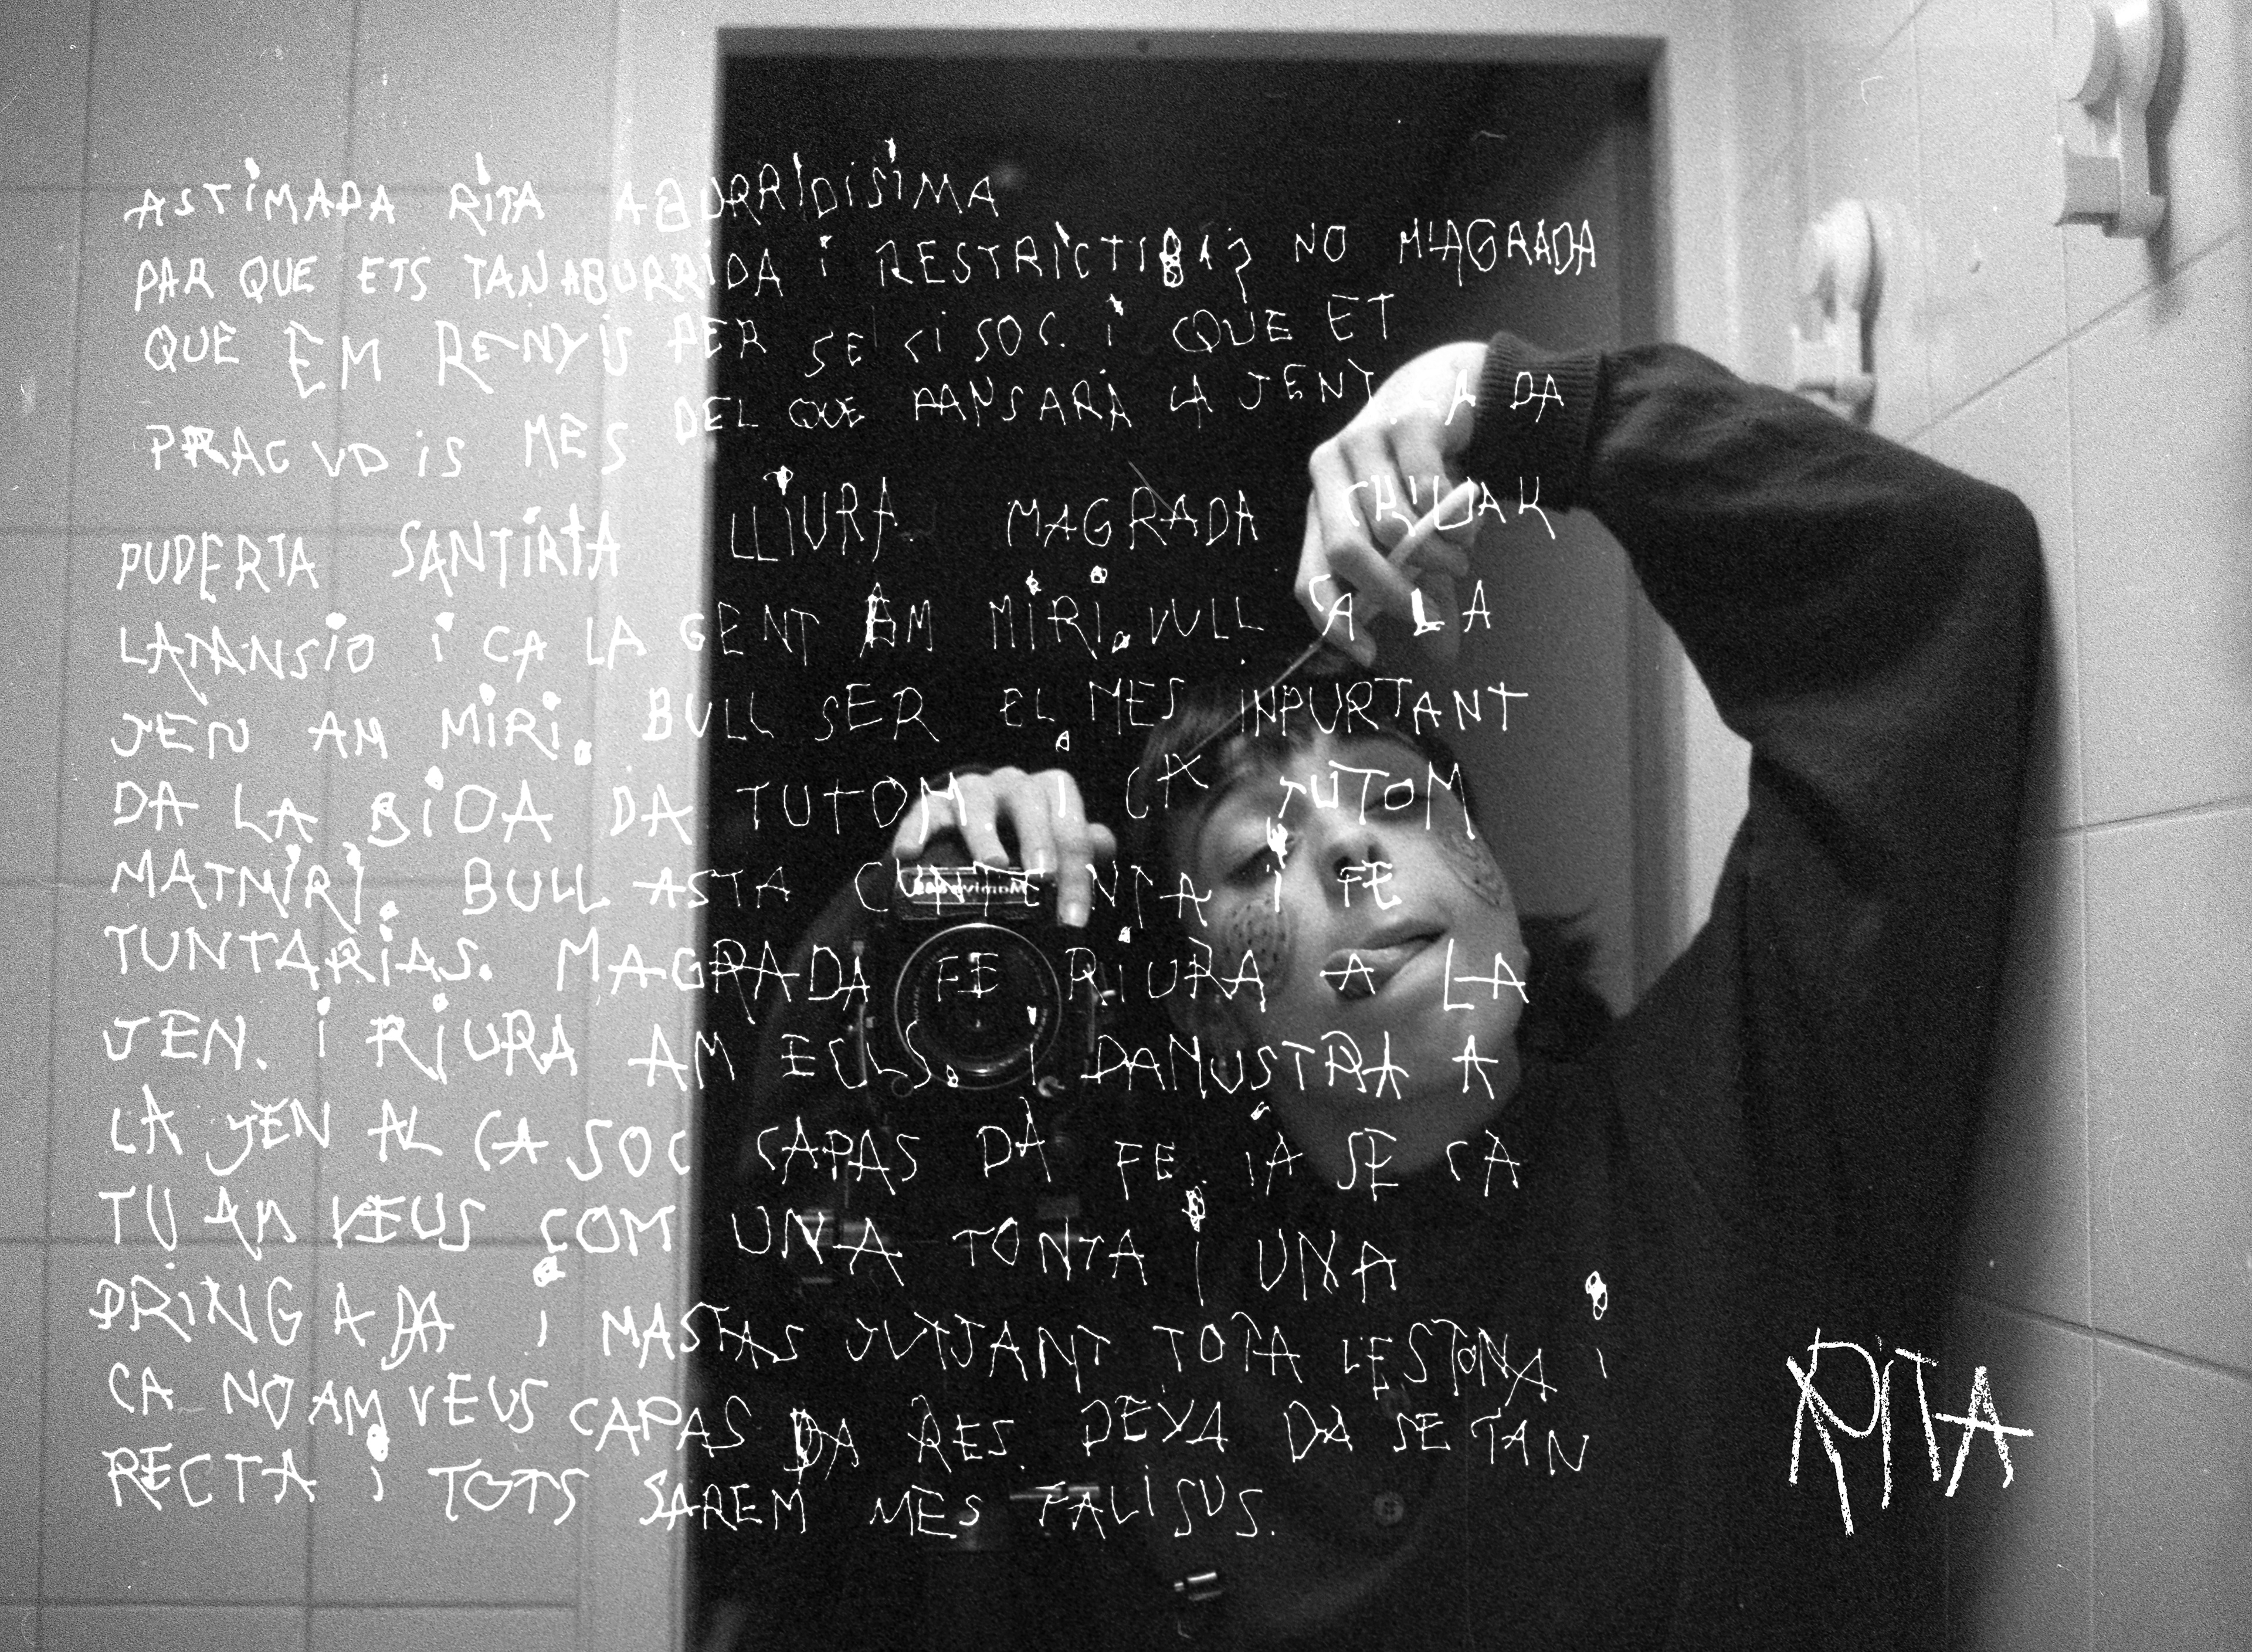 ASTIMADA RITA ABURRIDISIMA
PAR QUE ETS TAN ABURRIDA i RESTRICTIBA? NO M'AGRADA
QUE EM RENYIS PER SE CI SOC. i QUE ET
PRAC VD iS MES DEL QUE PANSARA LA JENT. A DA
PUDERTA SANTIRTA LLIURA. MAGRADA CRIDAR
LATANSIO i CA LA GENT AM MIRI. VULL CA LA
JEN AM MIRI. BULL SER EL MES INPURTANT
DA LA BIDA DA TUTOM. I CA TUTOM
MATMIRI. BULL ASTA CUNTENTA i FE
TUNTARIAS. MAGRADA FE RIURA A LA
JEN. i RIURA AM ELLS. I DAMUSTRA A
LA JEN AL CA SOC CAPAS DA FE. IA SE CA
TU AM VEUS COM UNA TONTA i UNA
PRINGADA i MASTAS JUTJANT TOTA L'ESTONA i
CA NO AM VEUS CAPAS DA RES. DEXA DA SE TAN
RECTA i TOTS SAREM MES FALISUS.
RITA
Mamiya